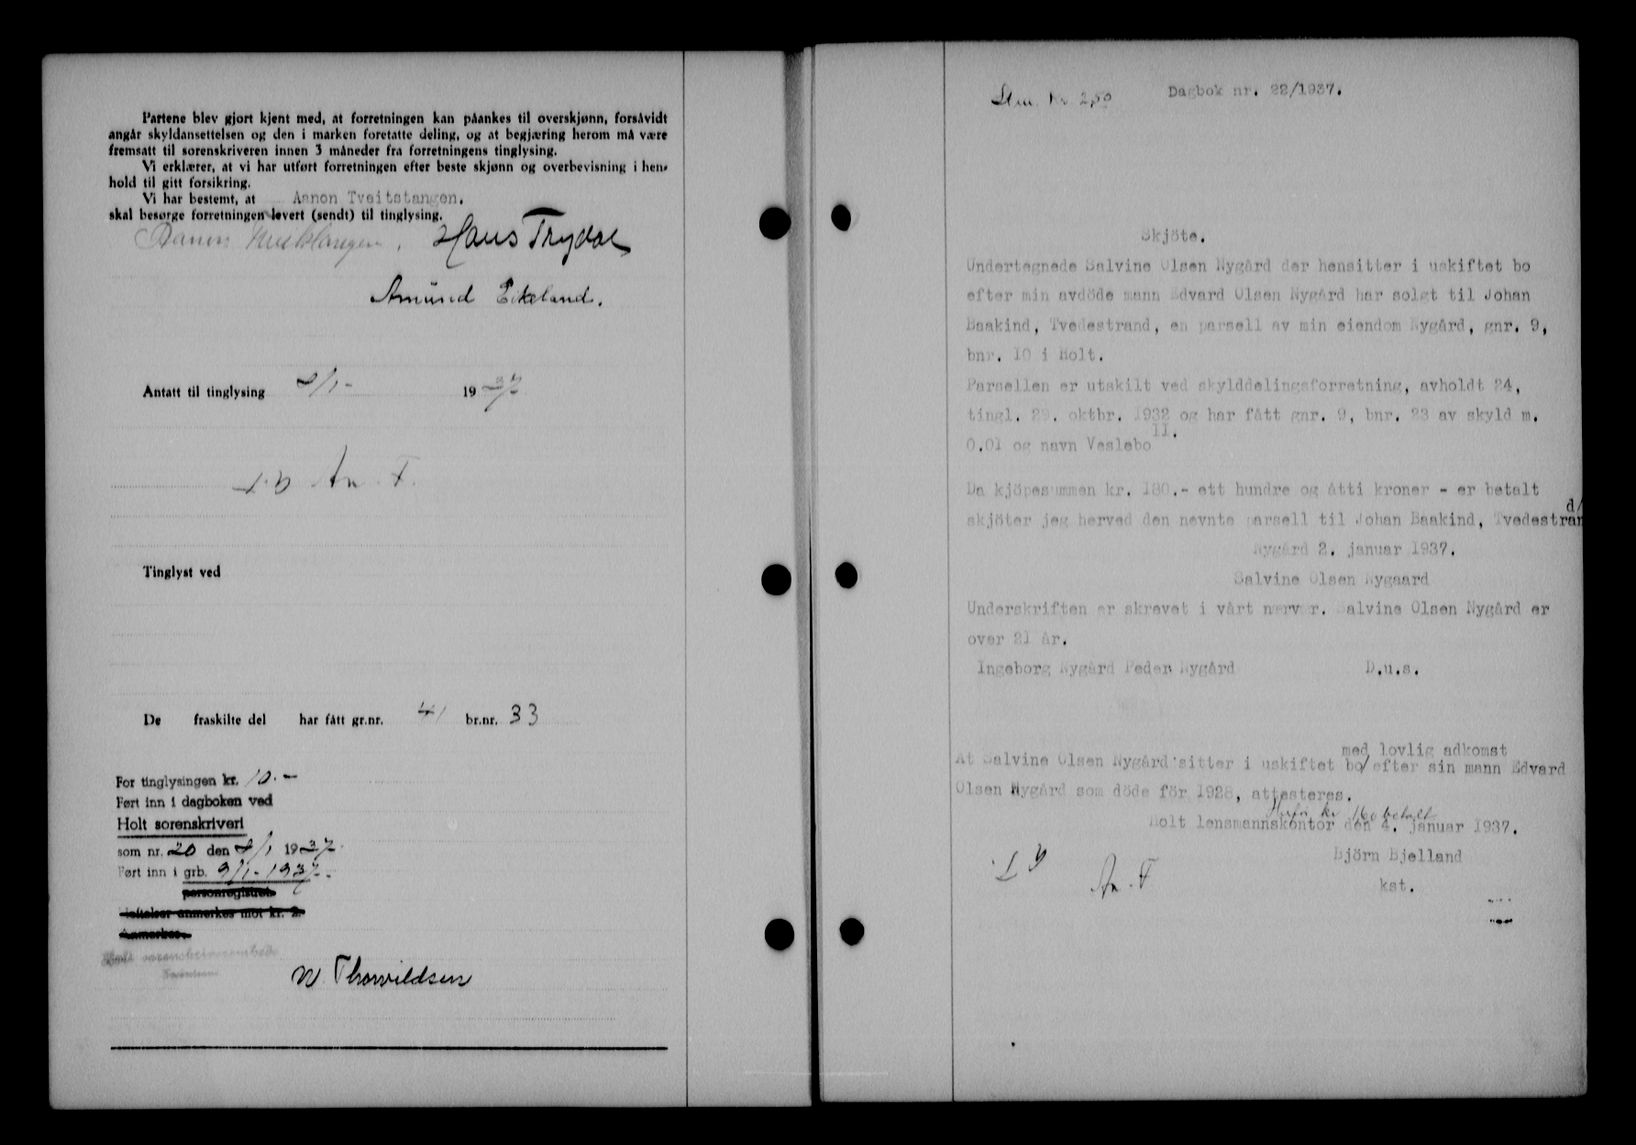 Partene blev gjort kjent med, at forretningen kan påankes til overskjønn, forsåvidt
angår skyldansettelsen og den i marken foretatte deling, og at begjæring herom må være
fremsatt til sorenskriveren innen 3 måneder fra forretningens tinglysing.
Vi erklærer, at vi har utført forretningen efter beste skjønn og overbevisning i hen-
hold til gitt forsikring.
Vi har bestemt, at Aanon Tveitstangen.
skal besørge forretningen levert (sendt) til tinglysing.
Hans Trydal
Amund Eikeland.
Antatt til tinglysing 8/1- 1937
Tinglyst ved
De fraskilte del har fått gr.nr. 41 br.nr. 33
For tinglysingen kr. 10.-
Ført inn i dagboken ved
Holt sorenskriveri
som nr. 20 den 8/1 1937.
Ført inn i grb. 9/1-1937.
personregistret
Heftelser anmerkes mot kr. 2.
Anmerkes.
N. Thorvildsen
Stm. kr. 2,50 Dagbok nr. 22/1937.
Skjöte.
Undertegnede Salvine Olsen Nygård der hensitter i uskiftet bo
efter min avdöde mann Edvard Olsen Nygård har solgt til Johan
Baakind, Tvedestrand, en parsell av min eiendom Nygård, gnr. 9,
bnr. 10 i Holt.
Parsellen er utskilt ved skylddelingsforretning, avholdt 24,
tingl. 29. oktbr. 1932 og har fått gnr. 9, bnr. 23 av skyld m.
0.01 og navn Veslebo II.
Da kjöpesummen kr. 180.- ett hundre og åtti kroner - er betalt
skjöter jeg herved den nevnte parsell til Johan Baakind, Tvedestrand/
Nygård 2. januar 1937.
Salvine Olsen Nygaard
Underskriften er skrevet i vårt nærvær. Salvine Olsen Nygård er
over 21 år.
Ingeborg Nygård Peder Nygård D.u.s.
med lovlig adkomst
At Salvine Olsen Nygård sitter i uskiftet bo/efter sin mann Edvard
Olsen Nygård som döde för 1928, attesteres.
kr 160 betalt
Holt lensmannskontor den 4. januar 1937.
Björn Bjelland
kst.